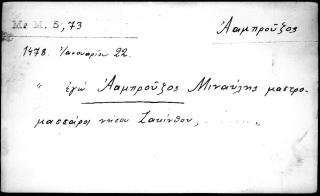 Me M. 5, 73
Λαμπροῦζος
1478. Ἰανουαρίου 22.
" ἐγώ Λαμπροῦζος Μιναύλης μαστρο-
μασσαίρος νήσου Ζακύνθου, . . . . . "